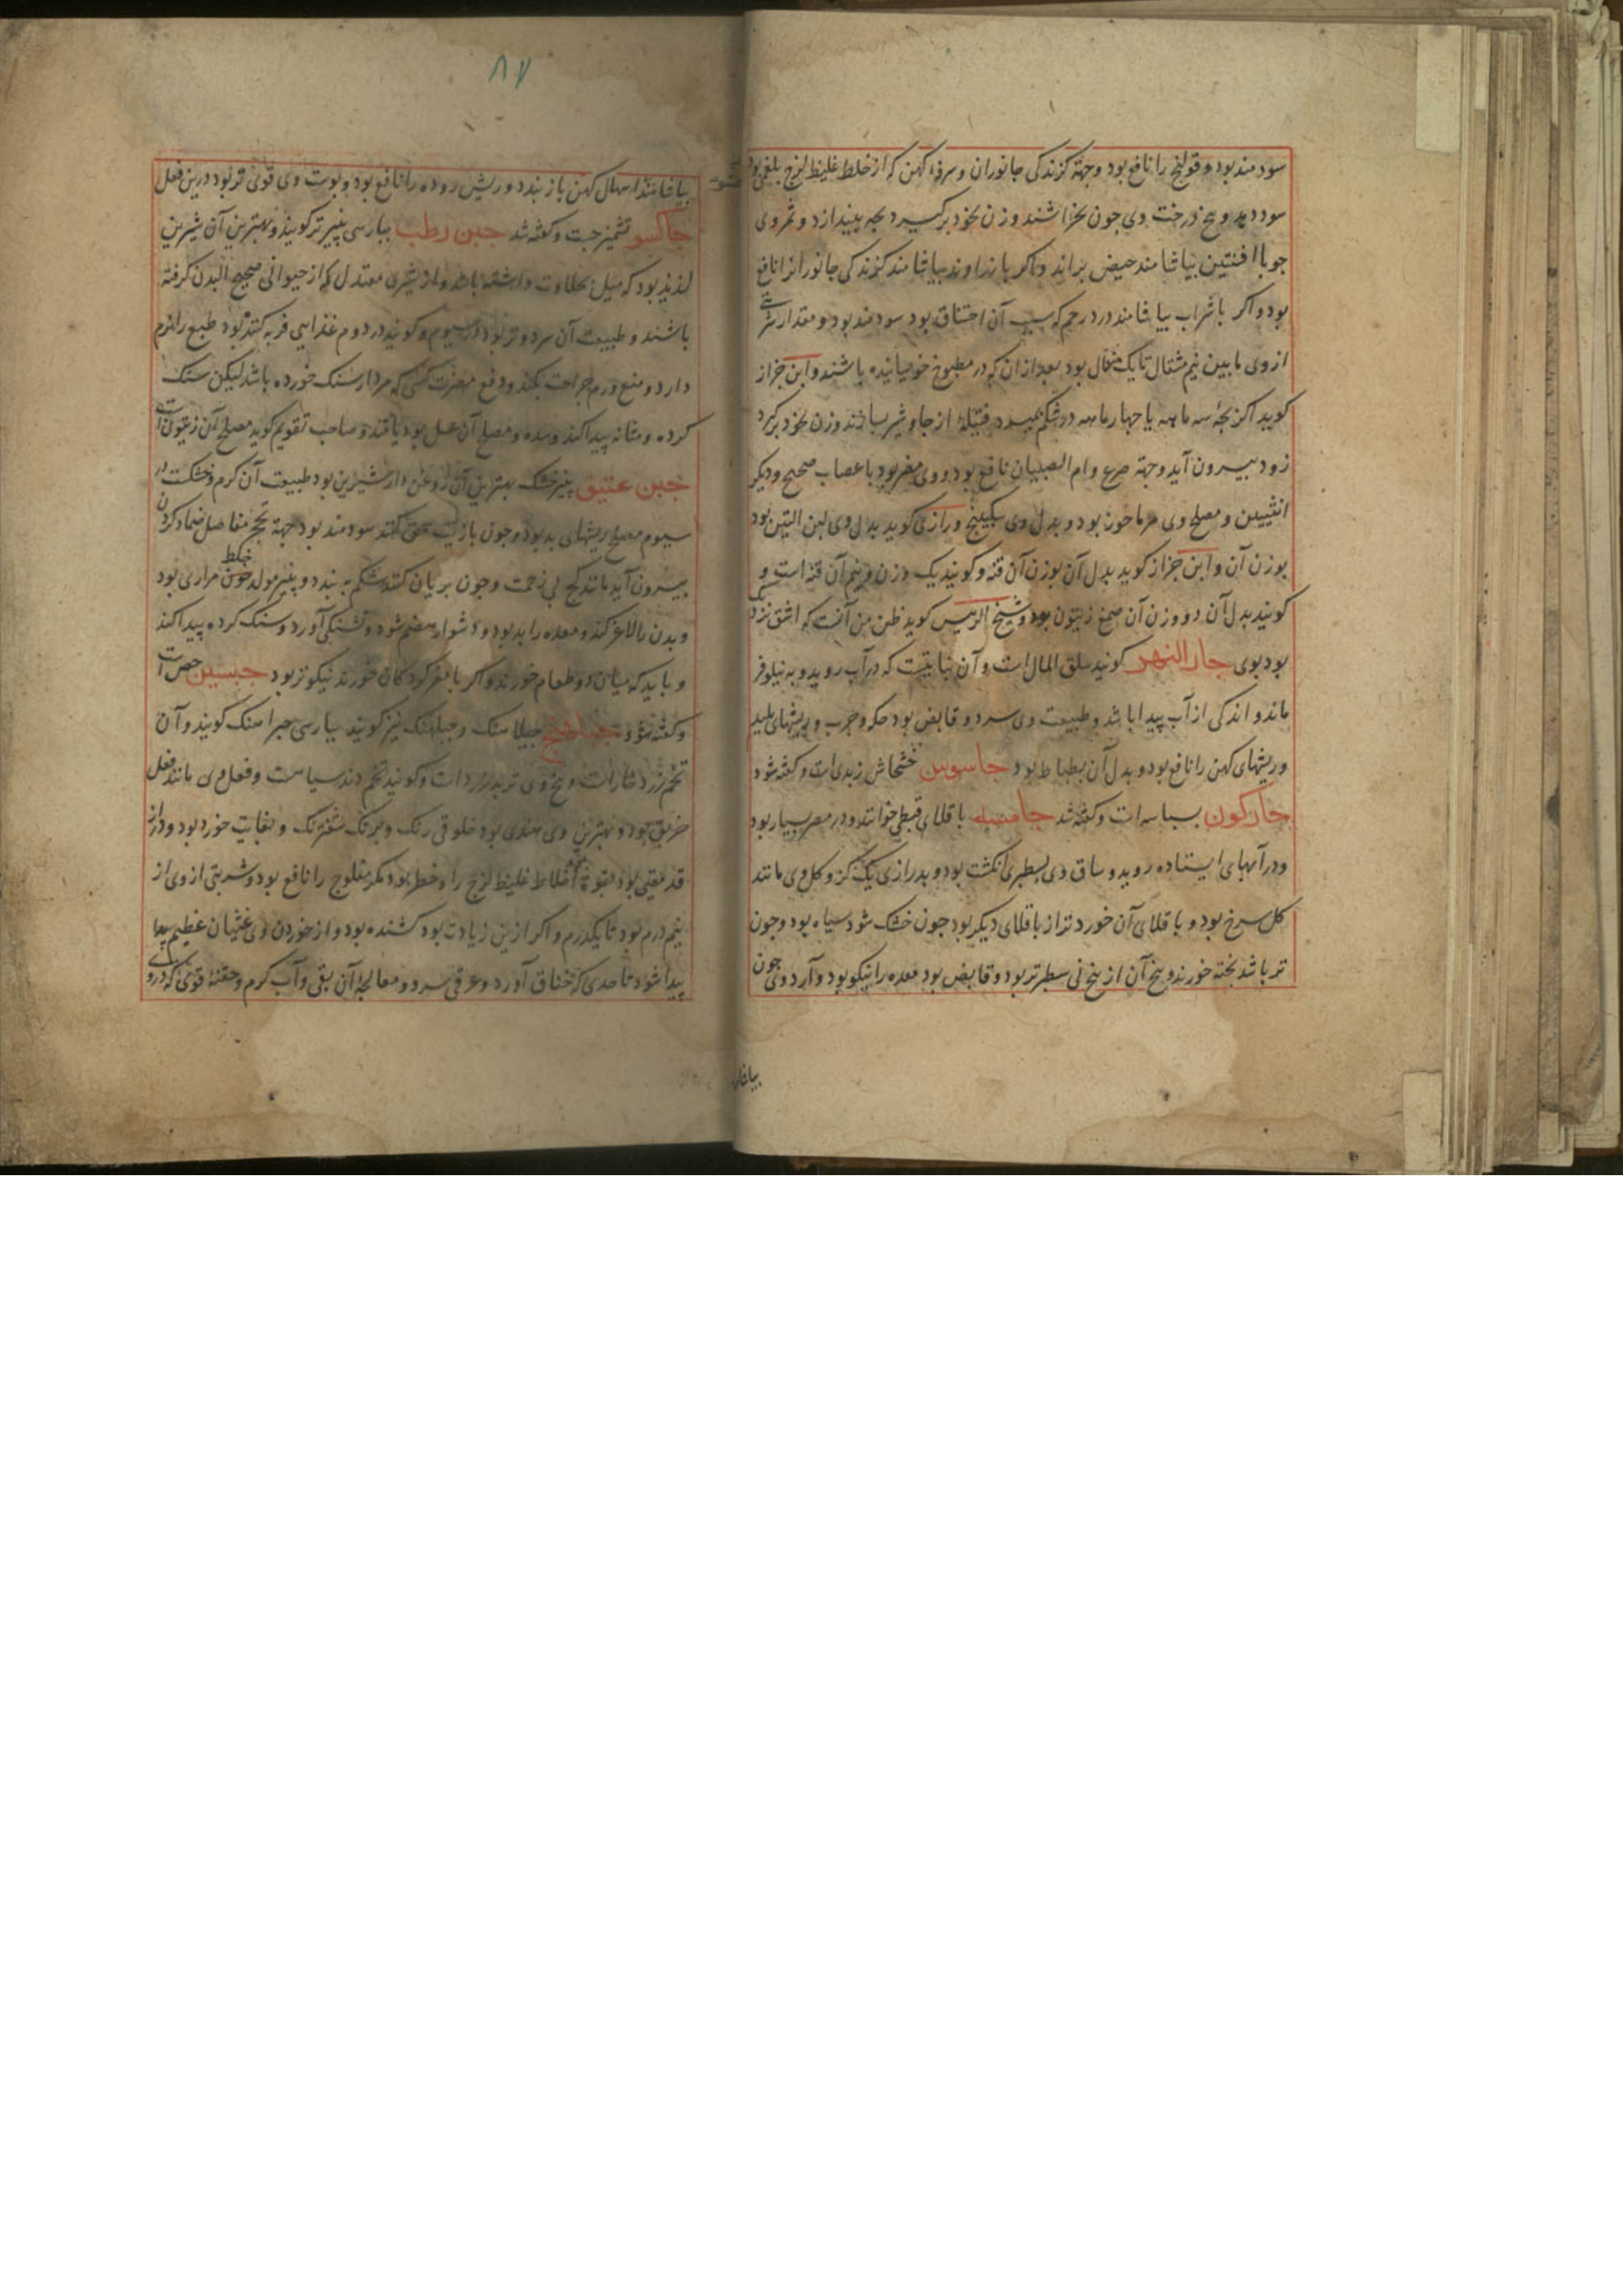 سودمند بود و قولنج را نافع بود وجهة کزندکی جانوران و سرفه کهن که از خلط غلیظ لزج بلغمی بود
سود دهد و بیخ درخت وی جون بخراشند و زن بخود برکیرد بجه بیندازد و ثمر وی
جون با افنتین بیاشامند حیض براند و اکر با زراوند بیاشامند کزندکی جانورانرا نافع
بود و اکر با شراب بیاشامند درد رحم که سبب آن اختناق بود سودمند بود و مقدار شربتی
از وی مابین نیم مثقال تا یک مثقال بود بعد از ان که در مطبوخ خوسیانیده باشند و ابن جزار
کوید اکر بجۀ سه ماهه یا جهار ماهه در شکم بمیرد فتیلۀ از جاوشیر بسازند و زن بخود برکیرد
زود بیرون آید وجهة صرع و ام الصبیان نافع بود و وی مضر بود باعصاب صحیح و دیکر
انثیین و مصلح وی مرماحوز بود و بدل وی سکبینج و رازی کوید بدل وی لبن التین بود
بوزن آن و ابن جزار کوید بدل آن بوزن آن قنه و کویند یک وزن و نیم آن قنه است و
کویند بدل آن دو وزن آن صمغ زیتون بود و شیخ الرییس کوید ظن من آنست که اشق نزد
بود بوی جار النهر کویند سلق المال است و آن نباتیست که در آب روید و به نیلوفر
ماند و اندکی از آب پیدا باشد و طبیعت وی سرد و قابض بود حکه و جرب و ریشهای پلید
و ریشهای کهن را نافع بود و بدل آن بطباط بود جاسوس خشخاش زبدی است و کفته شود
جارکون بسباسه است و کفته شد جامسه باقلای قبطی خوانند و در مصر بسیار بود
و در آبهای ایستاده روید و ساق وی بسطبری انکشت بود و بدرازی یک کز و کل وی مانند
کل سرخ بود و باقلای آن خوردتر از باقلای دیکر بود جون خشک شود سیاه بود و جون
تر باشد بخته خورند و بیخ آن از بیخ نی سطبرتر بود و قابض بود معده را نیکو بود و آرد وی جون
بیاشا
۸۷
بیاشامند اسهال کهن باز بندد و ریش روده را نافع بود و بوست وی قوی تر بود درین فعل
جاکسو تشمیزجست و کفته شد جبن رطب بپارسی پنیر تر کویند و بهترین آن شیرین
لذیذ بود که میل بحلاوت داشته باشد و از شیری معتدل که از حیوانی صحیح البدن کرفته
باشند و طبیعت آن سرد و تر بود در سیوم و کویند در دوم غذایی فربه کننده بود طبع را نرم
دارد و منع ورم جراحت بکند و دفع مضرت کسی که مردارسنک خورده باشد لیکن سنک
کرده و مثانه پیدا کند و سده و مصلح آن عسل بود یا قند و صاحب تقویم کوید مصلح آن زیتونست
جبن عتیق پنیر خشک بهترین آن روغن دار شیرین بود طبیعت آن کرم و خشکست در
سیوم مصلح ریشهای بد بود و جون با زیت سحق کنند سودمند بود جهة تحجر مفاصل ضماد کردن
بیرون آید مانند کج بی زحمت و جون بریان کنند شکم به بندد و پنیر مولد خلط خون مراری بود
و بدن را لاغر کند و معده را بد بود و دشوار هضم شود و تشنکی آورد و سنک کرده پیدا کند
و باید که میان دو طعام خورند و اکر با مغز کردکان خورند نیکوتر بود جبسین جص است
و کفته شود جبلاهنج جبیلاهنک و جبلهنک نیز کویند بپارسی جبراهنک کویند و آن
تخم زرد خار است و بیخ وی تربد زرد است و کویند تخم دند سیاهست و فعل وی مانند فعل
خربق بود و بهترین وی هندی بود خلوقی رنک و برنک شفترنک و بغایت خورد بود و در آن
قد مقیی بود بقوة اخلاط غلیظ لزج را و خطر بود مکر مفلوج را نافع بود و شربتی از وی از
نیم درم بود تا یکدرم و اکر ازین زیادت بود کشنده بود و از خوردن وی غثیان عظیم پیدا
پیدا شود تا حدی که خناق آورد و عرقی سرد و معالجۀ آن بقی و آب کرم و حقنۀ قوی که درو